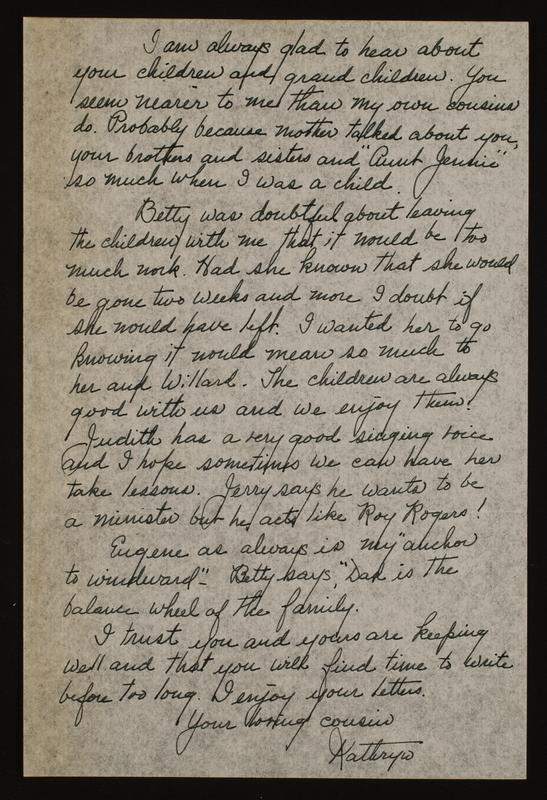 I am always glad to hear about
your children and grand children. You
seem nearer to me than my own cousins
do. Probably because mother talked about you,
your brothers and sisters and "Aunt Jennie"
so much when I was a child.
Betty was doubtful about leaving
the children with me that it would be too
much work. Had she known that she would
be gone two weeks and more I doubt if
she would have left. I wanted her to go
knowing it would mean so much to
her and Willard. The children are always
good with us and we enjoy them.
Judith has a very good singing voice
and I hope sometimes we can have her
take lessons. Jerry says he wants to be
a minister but he acts like Roy Rogers!
Eugene as always is my "anchor
to windward" - Betty says, "Dad is the
balance wheel of the family.
I trust you and yours are keeping
well and that you will find time to write
before too long. I enjoy your letters.
Your loving cousin
Kathryn